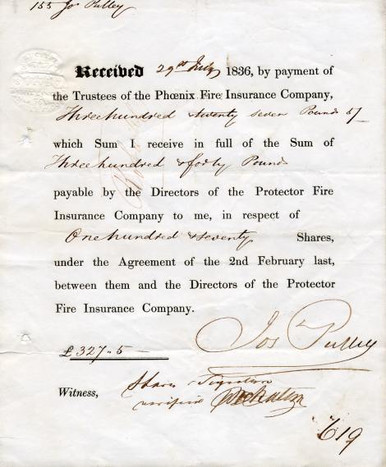 155 Jos Pulley
Received 29th July 1836, by payment of
the Trustees of the Phœnix Fire Insurance Company,
Three hundred & twenty seven Pounds 5/
which Sum I receive in full of the Sum of
Three hundred & forty Pounds
payable by the Directors of the Protector Fire
Insurance Company to me, in respect of
One hundred & seventy Shares,
under the Agreement of the 2nd February last,
between them and the Directors of the Protector
Fire Insurance Company.
Jos Pulley
£ 327-5-
Witness, Share Signature
verified
619